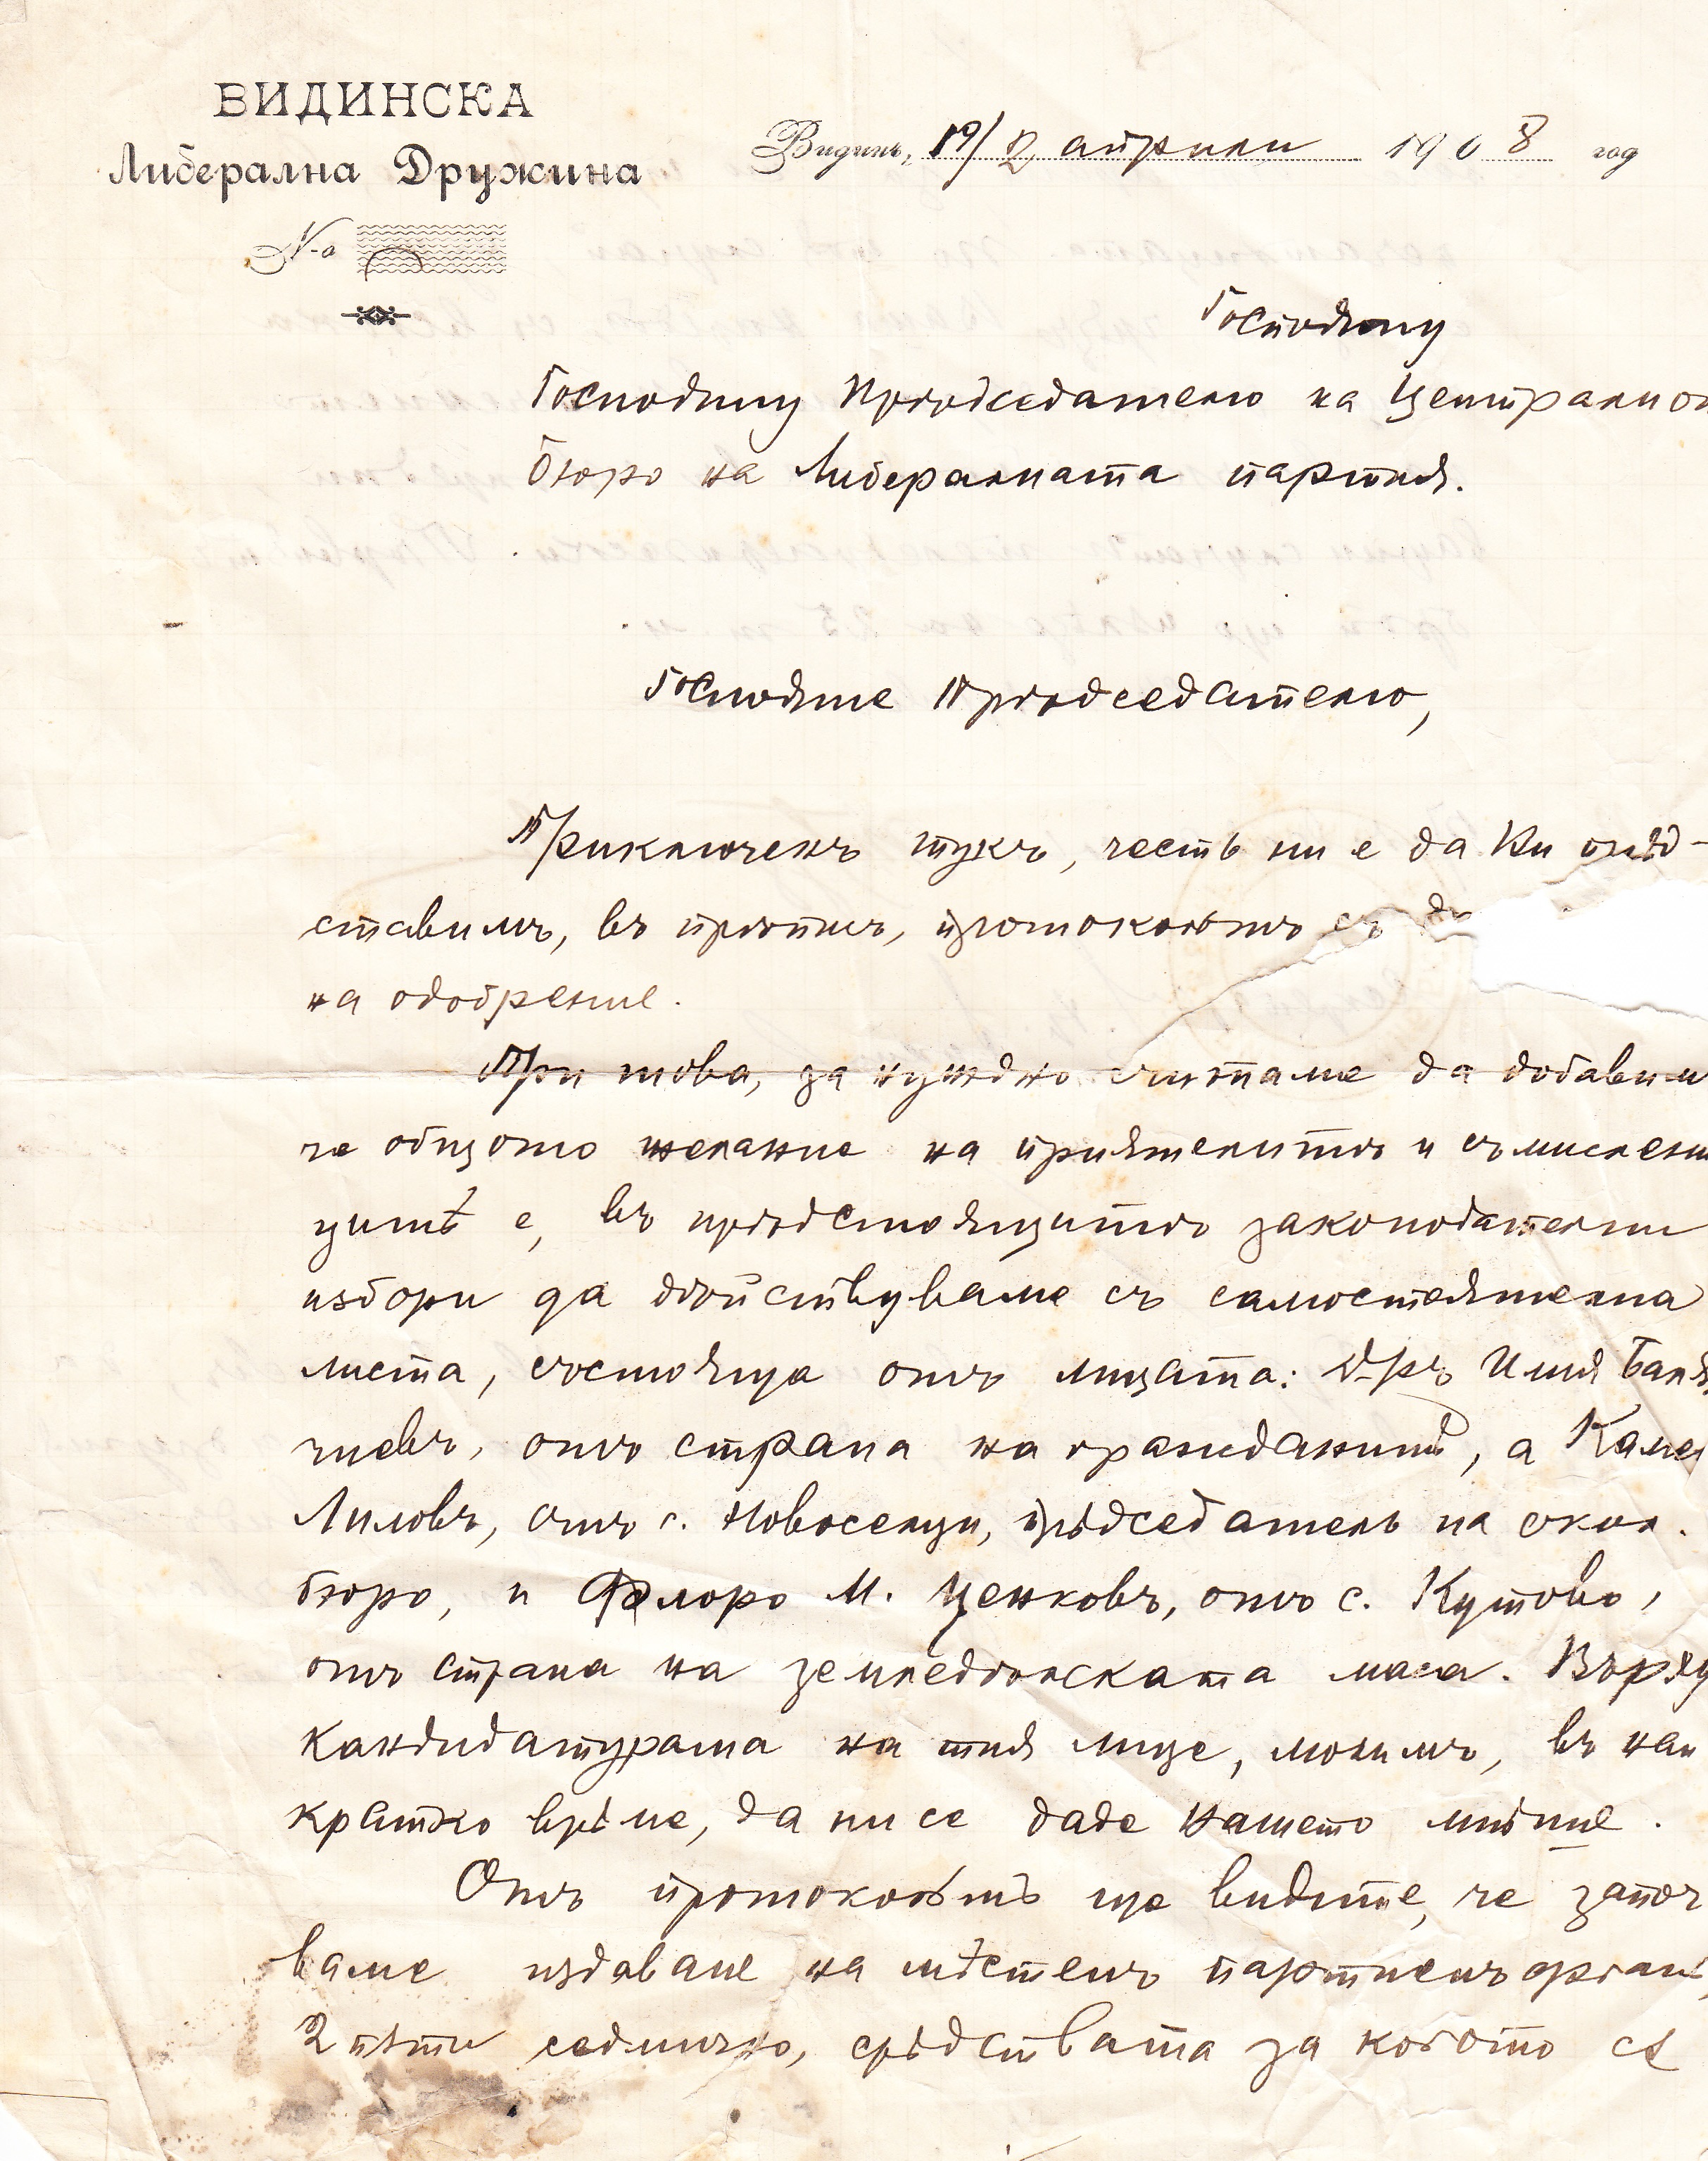 ВИДИНСКА
Либерална Дружина
N-о
Видинъ, 19/2 априли 1908 год
Господину
Господину Прѣдседателю на Централно
бюро на Либералната партия.
Господине Прѣдседателю,
Приключенъ тукъ, честь ни е да Ви прѣд-
ставимъ, въ прѣписъ, протоколътъ съ
на одобрение.
При това, за нуждно считаме да добавим
че общото желание на приятелитѣ и съмислен
цитѣ е, въ прѣдстоящитѣ законодателни
избори да дѣйствуваме съ самостоятелна
листа, състояща отъ лицата: Д-ръ Илия Баля
чиевъ, отъ страна на гражданитѣ, а Камен
Лиловъ, отъ с. Новоселци, прѣдседатель на окол.
бюро, и Флоро М. Ценковъ, отъ с. Кутово,
отъ страна на земледѣлската маса. Върху
кандидатурата на тия лице, молимъ, въ най
кратко врѣме, да ни се даде Вашето мнѣние.
Отъ протоколътъ ще видите, че започ
ваме издаване на мѣстенъ партиенъ орган,
2 пѫти седмично, срѣдствата за когото се